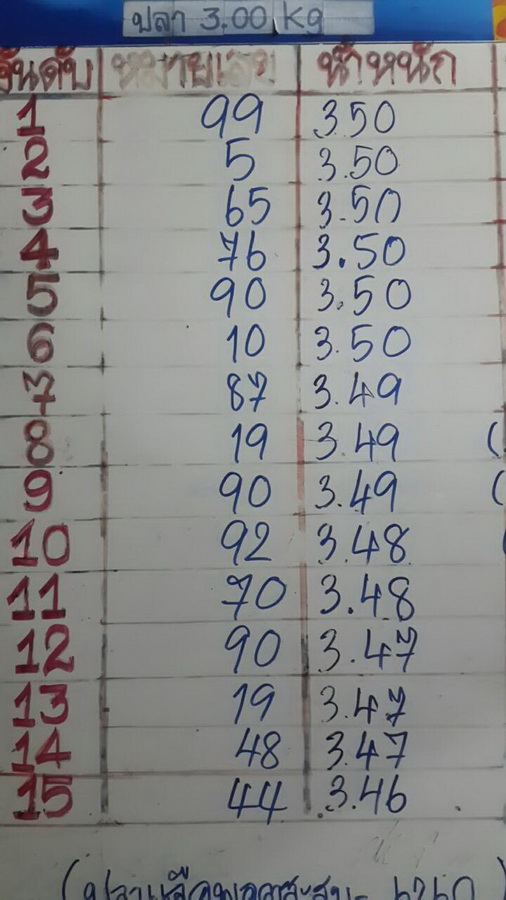 ปลา 3.00 Kg
อันดับ หมายเลข น้ำหนัก
1 99 3.50
2 5 3.50
3 65 3.50
4 76 3.50
5 90 3.50
6 10 3.50
7 87 3.49
8 19 3.49 (
9 90 3.49 (
10 92 3.48
11 70 3.48
12 90 3.47
13 19 3.47
14 48 3.47
15 44 3.46